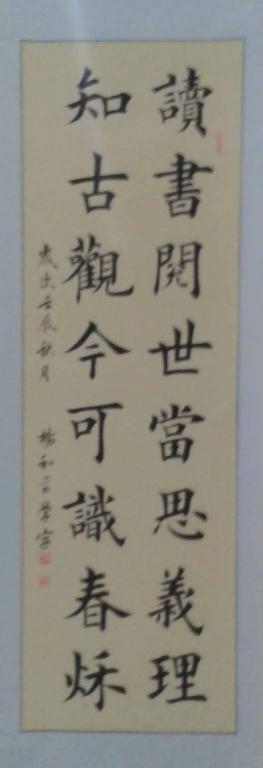 讀書閱世當思義理
知古觀今可識春秌
歲次壬辰秋月
楊和 學字